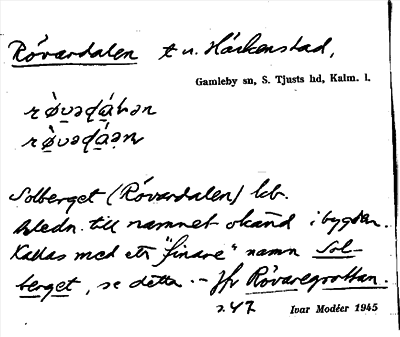 Rövardalen t u. Häckenstad,
Gamleby sn, S. Tjusts hd, Kalm. l.
Solberget (Rövardalen) lb.
Anledn. till namnet okänd i bygden.
Kallas med ett "finare" namn Sol-
berget, se detta. - Jfr Rövaregrottan.
s. 47 Ivar Modéer 1945